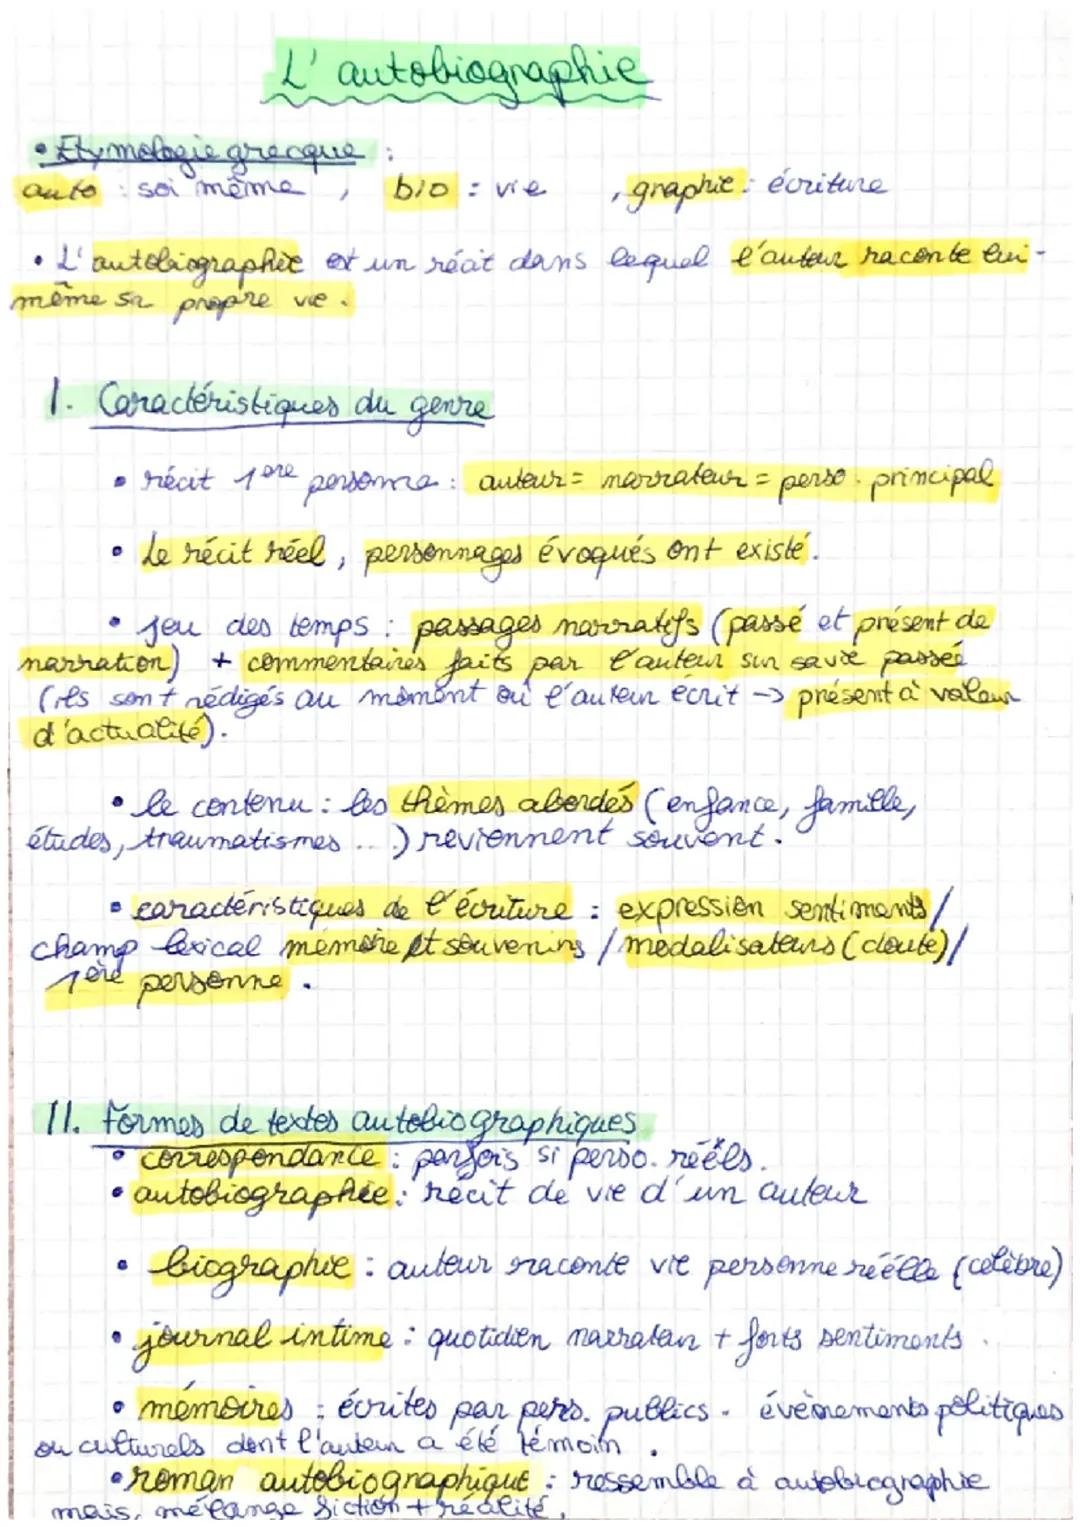 L'autobiographie
• Etymologie grecque :
auto : soi même , bio : vie , graphie : écriture
• L'autobiographie est un récit dans lequel l'auteur raconte lui-
même sa propre vie.
I. Caractéristiques du genre
• récit 1ère personne : auteur = narrateur = perso. principal
• Le récit réel, personnages évoqués ont existé.
• jeu des temps : passages narratifs (passé et présent de
narration) + commentaires faits par l'auteur sur sa vie passée
(ils sont rédigés au moment où l'auteur écrit → présent à valeur
d'actualité).
• le contenu : les thèmes abordés (enfance, famille,
études, traumatismes ...) reviennent souvent.
• caractéristiques de l'écriture : expression sentiments /
champ lexical mémoire et souvenirs / modalisateurs (doute) /
1ère personne.
II. Formes de textes autobiographiques
• correspondance : parfois si perso. réels.
• autobiographie : récit de vie d'un auteur
• biographie : auteur raconte vie personne réélle (célèbre)
• journal intime : quotidien narrateur + forts sentiments.
• mémoires : écrites par pers. publics. évènements politiques
ou culturels dont l'auteur a été témoin.
• roman autobiographique : ressemble à autobiographie
mais, mélange fiction + réalité.